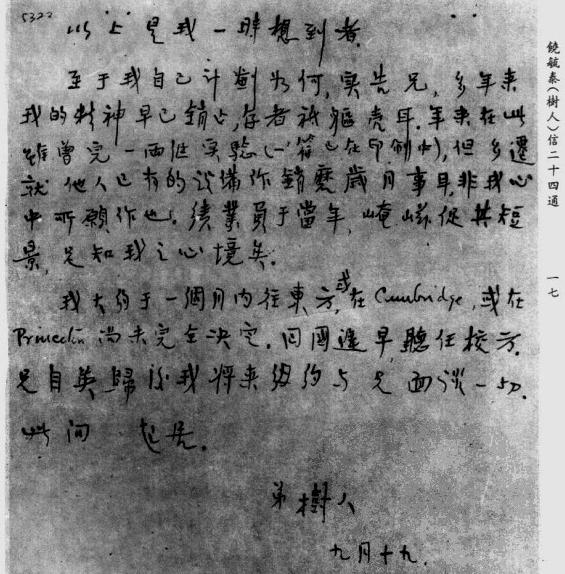 5322
以上是我一時想到者。
至于我自己計劃如何,实告兄,多年来
我的精神早已銷亡,存者祇軀壳耳。年来在此
雖曾完一両低实驗(一篇已在印刷中),但多遷
就他人已有的设備作銷磨歲月事耳,非我心
中所願作也。績業負于當年,崦嵫促其短
景,足知我之心境矣。
我大約于一個月内往東方,或在Cambridge,或在
Princeton尚未完全决定。回國遲早,聽任校方。
兄自英歸後我將来紐約与兄面谈一切。
此问 起居。
弟樹人
九月十九。
饒毓泰(樹人)信二十四通
一七